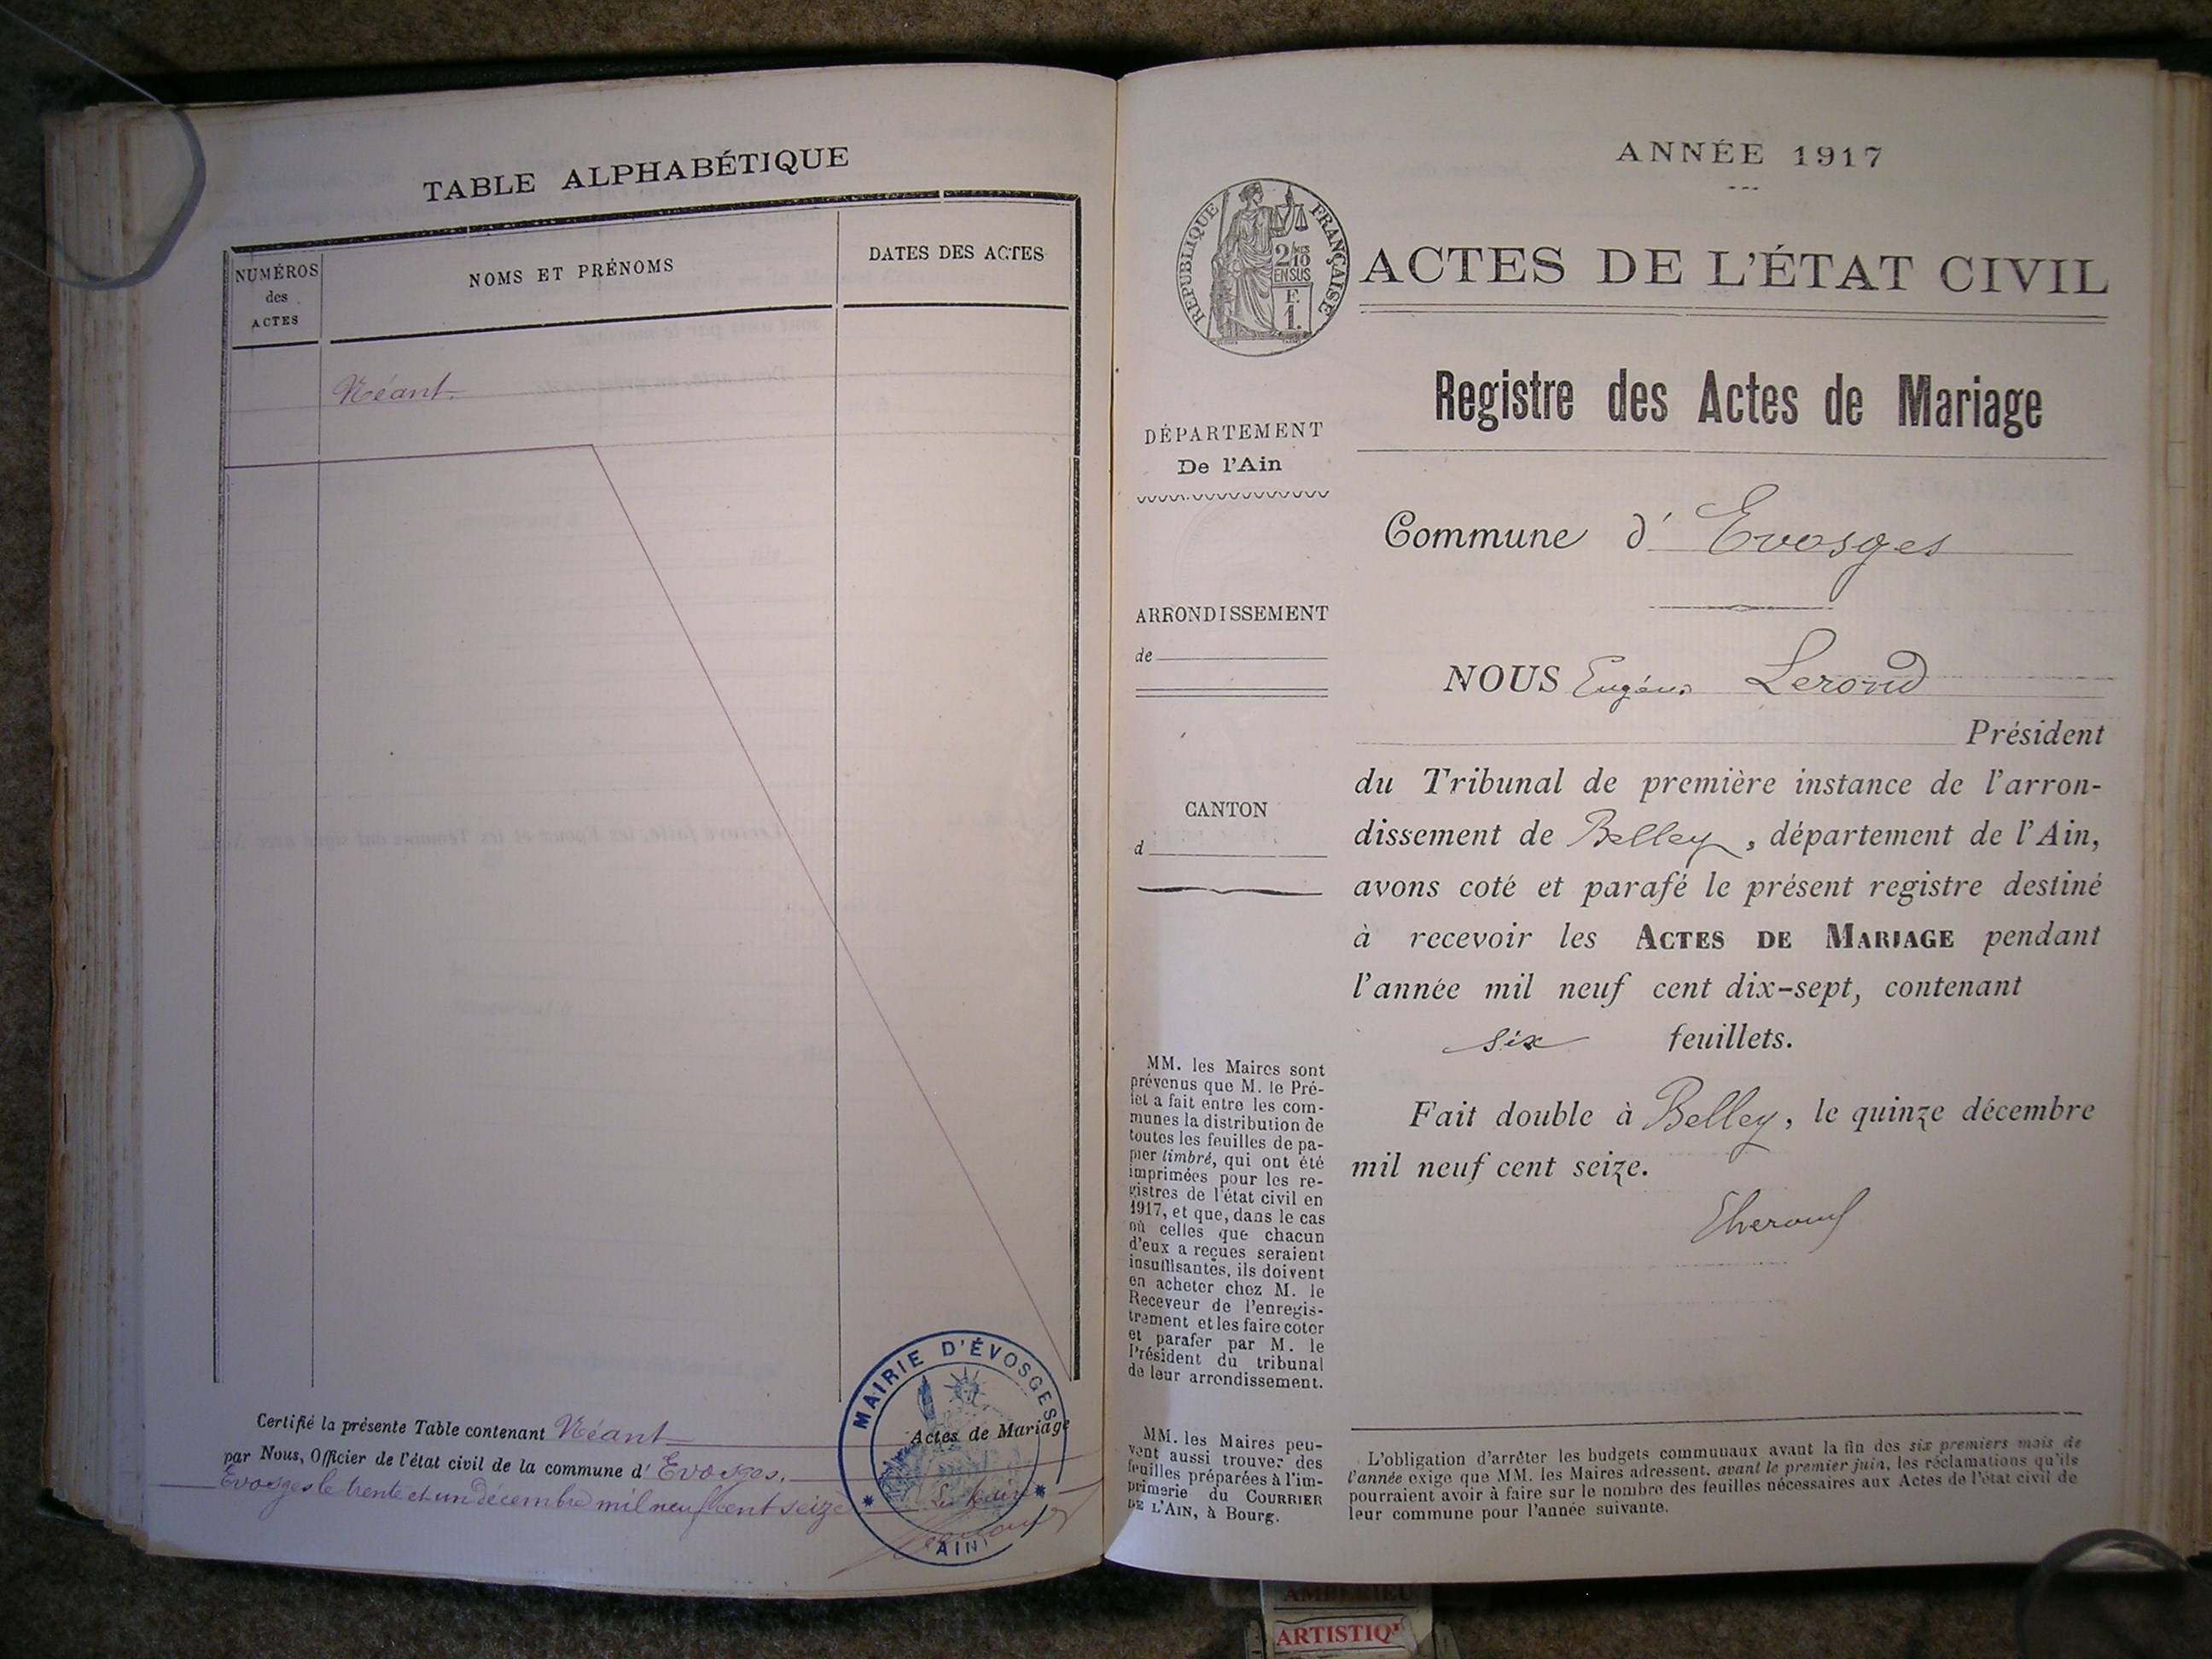 TABLE ALPHABÉTIQUE
NUMÉROS
des
ACTES
NOMS ET PRÉNOMS
DATES DES ACTES
Néant.
Certifié la présente Table contenant Néant Actes de Mariage
par Nous, Officier de l'état civil de la commune d' Evosges.
Evosges le trente et un décembre mil neuf cent seize
Le Maire
MAIRIE D'ÉVOSGES
AIN
ANNÉE 1917
RÉPUBLIQUE FRANÇAISE
2/10 MES
EN SUS
F.
1.
ACTES DE L'ÉTAT CIVIL
Registre des Actes de Mariage
DÉPARTEMENT
De l'Ain
Commune d' Evosges
ARRONDISSEMENT
de
NOUS Eugène Lerond
Président
CANTON
d
du Tribunal de première instance de l'arron-
dissement de Belley, département de l'Ain,
avons coté et parafé le présent registre destiné
à recevoir les ACTES DE MARIAGE pendant
l'année mil neuf cent dix-sept, contenant
six feuillets.
Fait double à Belley, le quinze décembre
mil neuf cent seize.
MM. les Maires sont
prévenus que M. le Pré-
fet a fait entre les com-
munes la distribution de
toutes les feuilles de pa-
pier timbré, qui ont été
imprimées pour les re-
gistres de l'état civil en
1917, et que, dans le cas
où celles que chacun
d'eux a reçues seraient
insuffisantes, ils doivent
en acheter chez M. le
Receveur de l'enregis-
trement et les faire coter
et parafer par M. le
Président du tribunal
de leur arrondissement.
MM. les Maires peu-
vent aussi trouver des
feuilles préparées à l'im-
primerie du COURRIER
DE L'AIN, à Bourg.
L'obligation d'arrêter les budgets communaux avant la fin des six premiers mois de
l'année exige que MM. les Maires adressent, avant le premier juin, les réclamations qu'ils
pourraient avoir à faire sur le nombre des feuilles nécessaires aux Actes de l'état civil de
leur commune pour l'année suivante.
AMBERIEU
ARTISTIQ